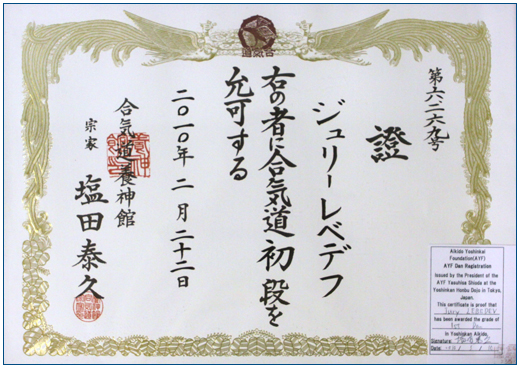 第六二六九号
證
ジュリーレベデフ
右の者に合気道初段を
允可する
二〇一〇年二月二十二日
合気道養神館
宗家
塩田泰久
Aikido Yoshinkai
Foundation(AYF)
AYF Dan Registration
Issued by the President of the
AYF Yasuhisa Shioda at the
Yoshinkan Honbu Dojo in Tokyo,
Japan.
This certificate is proof that
LEBEDEV
has been awarded the grade of
1st Dan
in Yoshinkan Aikido.
Signature
Date: